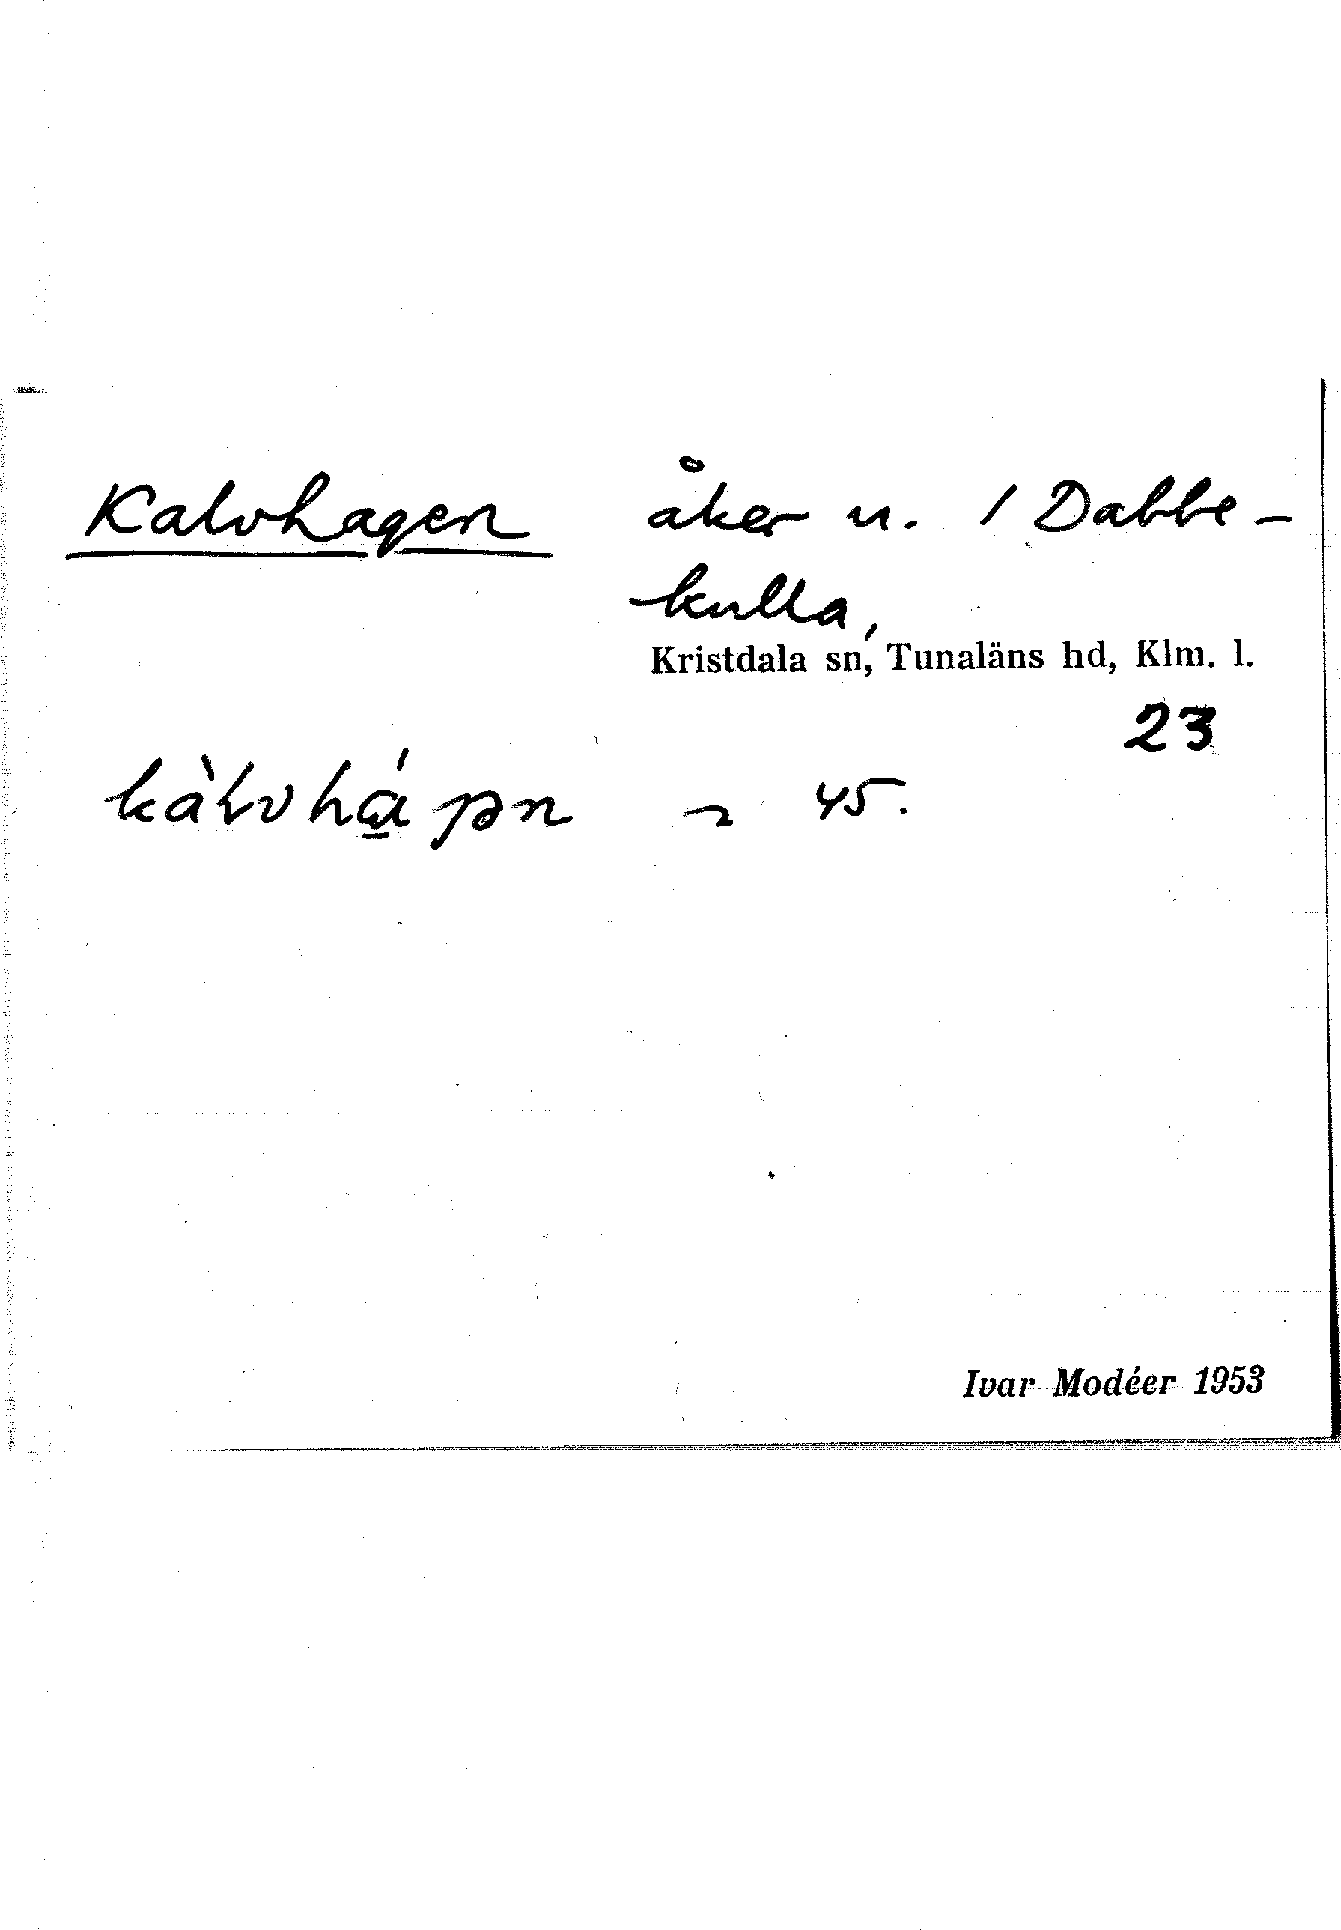 Kalvhagen åker u. / Dabbe-
kulla,
Kristdala sn, Tunaläns hd, Klm. l.
23
45.
Ivar Modéer 1953